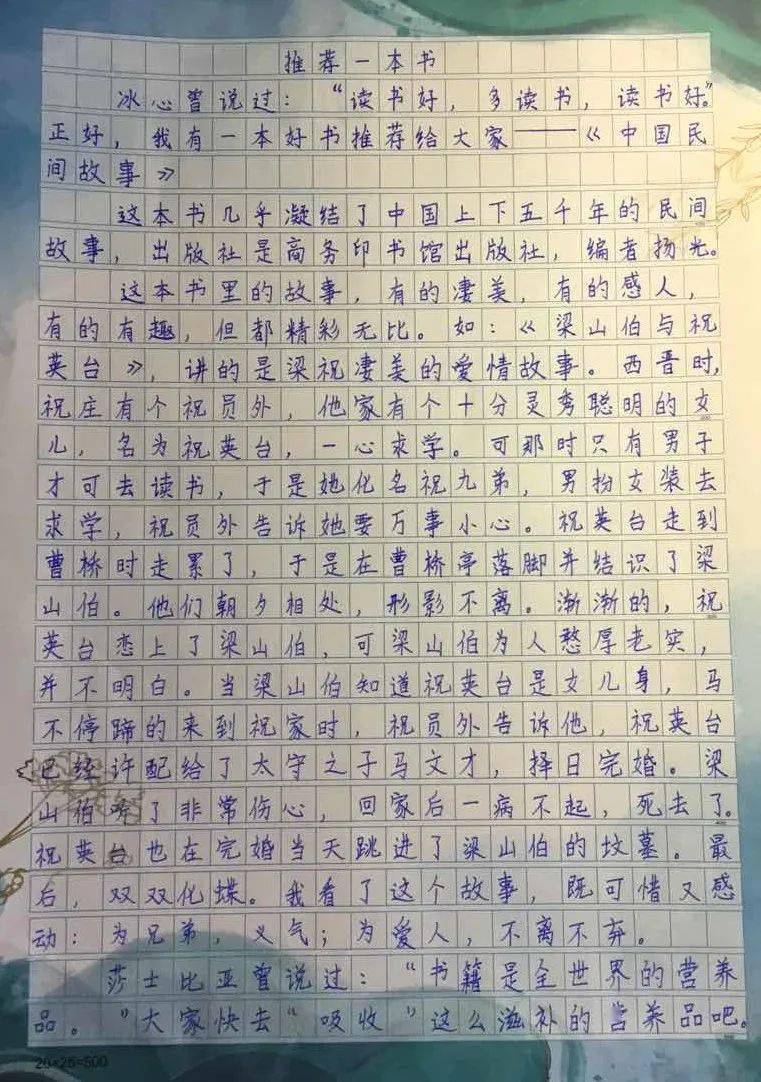 推荐一本书
冰心曾说过：“读书好，多读书，读书好。”
正好，我有一本好书推荐给大家——《中国民
间故事》
这本书几乎凝结了中国上下五千年的民间
故事，出版社是商务印书馆出版社，编者扬光。
这本书里的故事，有的凄美，有的感人，
有的有趣，但都精彩无比。如：《梁山伯与祝
英台》，讲的是梁祝凄美的爱情故事。西晋时，
祝庄有个祝员外，他家有个十分灵秀聪明的女
儿，名为祝英台，一心求学。可那时只有男子
才可去读书，于是她化名祝九弟，男扮女装去
求学，祝员外告诉她要万事小心。祝英台走到
曹桥时走累了，于是在曹桥亭落脚并结识了梁
山伯。他们朝夕相处，形影不离。渐渐的，祝
英台恋上了梁山伯，可梁山伯为人憨厚老实，
并不明白。当梁山伯知道祝英台是女儿身，马
不停蹄的来到祝家时，祝员外告诉他，祝英台
已经许配给了太守之子马文才，择日完婚。梁
山伯听了非常伤心，回家后一病不起，死去了。
祝英台也在完婚当天跳进了梁山伯的坟墓。最
后，双双化蝶。我看了这个故事，既可惜又感
动：为兄弟，义气；为爱人，不离不弃。
莎士比亚曾说过：“书籍是全世界的营养
品。”大家快去“吸收”这么滋补的营养品吧。
20×25=500